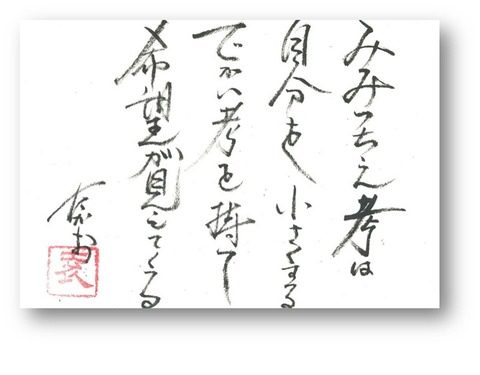 みみっちえ考は
自分も小さくする
でかい考を持て
希望が見えてくる